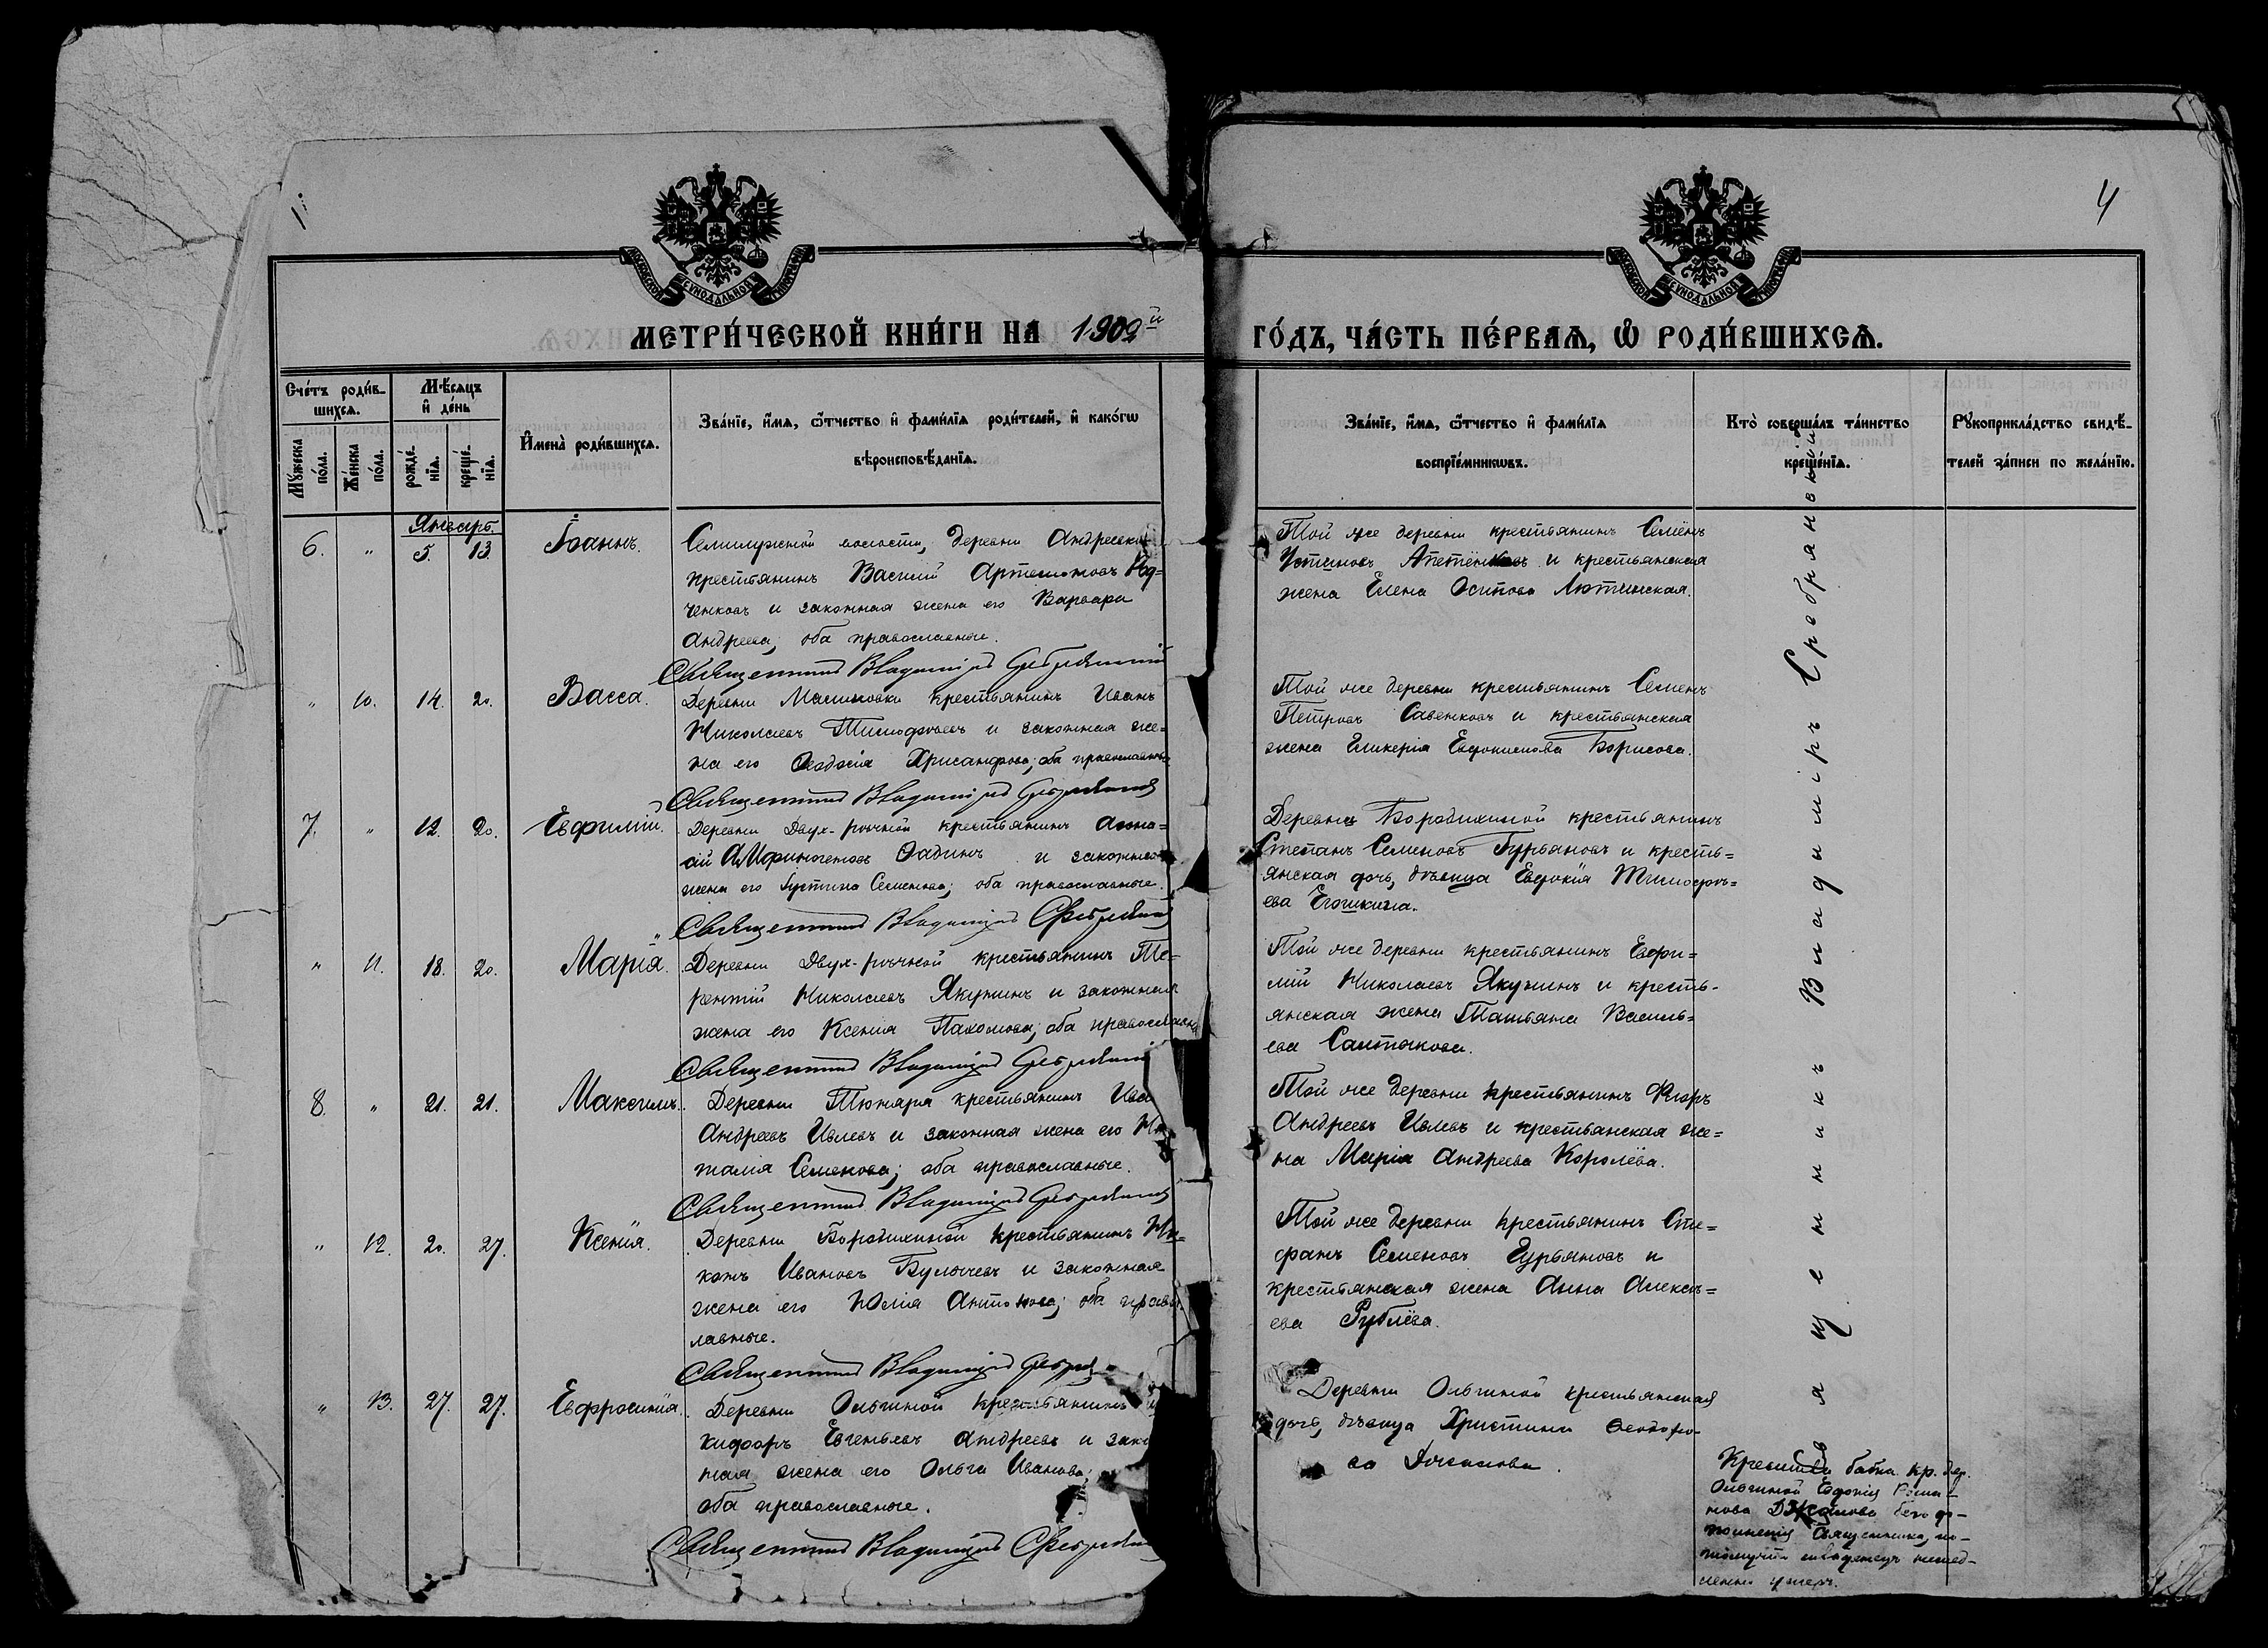 4
МОСКОВСКОЙ СѴНОДАЛЬНОЙ ТИПОГРАФІИ
МОСКОВСКОЙ СѴНОДАЛЬНОЙ ТИПОГРАФІИ
МЕТРИ́ЧЕСКОЙ КНИ́ГИ НА 1909й ГО́ДЪ, ЧА́СТЬ ПЕ́РВАѦ, Ѽ РОДИ́ВШИХСѦ.
Сче́тъ роди́в-
шихсѧ.
Мѣ́сѧцъ
и҆ де́нь
Мꙋ́жеска
по́ла.
Же́нска
по́ла.
рожде́-
нїѧ.
креще́-
нїѧ.
И҆мена̀ роди́вшихсѧ.
Зва́нїе, и҆́мѧ, ѻ҆́тчество и҆ фами́лїѧ роди́телей, и҆ како́гѡ
вѣроисповѣ́данїѧ.
Зва́нїе, и҆́мѧ, ѻ҆́тчество и҆ фами́лїѧ
воспрїе́мникѡвъ.
Кто̀ соверша́лъ та́инство
креще́нїѧ.
Рꙋкоприкла́дство свидѣ́-
телей за́писи по жела́нїю.
Январь.
6. " 5. 13. Іоаннъ.
Семилужной волости, деревни Андреевки
крестьянинъ Василій Артемоновъ
ченковъ и законная жена его Варвара
Андреева; оба православные.
Священникъ Владиміръ Серебрянскій
Той же деревни крестьянинъ Семёнъ
Устиновъ и крестьянская
жена Елена Осипова Лютинская.
" 10. 14. 20. Васса.
Деревни Малиновки крестьянинъ Иванъ
Николаевъ Тимофѣевъ и законная же-
на его Ѳеодосія Хрисанфова; оба православные
Священникъ Владиміръ Серебрянскій
Той же деревни крестьянинъ Семенъ
Петровъ Савенковъ и крестьянская
жена Гликерія Евдокимова Борисова.
7. " 12. 20. Евфимій.
Деревни Двух-рѣчной крестьянинъ Аѳона-
сій Аѳиногеновъ Ѳадинъ и законная
жена его Іустина Семенова; оба православные.
Священникъ Владиміръ Серебрянскій
Деревни Бородихиной крестьянинъ
Степанъ Семеновъ Гурьяновъ и кресть-
янская дочь, дѣвица Евдокія Тимофѣ-
ева Егошкина.
" 11. 18. 20. Марія.
Деревни Двух-рѣчной крестьянинъ Те-
рентій Николаевъ Якунинъ и законная
жена его Ксенія Пахомова; оба православн
Священникъ Владиміръ Серебрянскій
Той же деревни крестьянинъ Евфи-
мій Николаевъ Якунинъ и кресть-
янская жена Татьяна Василь-
ева Салтыкова.
8. " 21. 21. Максимъ.
Деревни Тюняря крестьянинъ Ива
Андреевъ Ивлевъ и законная жена его На
талія Семенова; оба православные.
Священникъ Владиміръ Серебрянскій
Той же деревни крестьянинъ Ѳедоръ
Андреевъ Ивлевъ и крестьянская же-
на Марія Андреева Королёва.
" 12. 20. 27. Ксенія.
Деревни Бородихиной крестьянинъ Ни-
конъ Ивановъ Булычевъ и законная
жена его Юлія Антонова; оба право
лавные.
Священникъ Владиміръ Серебр
Той же деревни крестьянинъ Сте-
фанъ Семеновъ Гурьяновъ и
крестьянская жена Анна Алексѣ-
ева Рублёва.
" 13. 27. 27. Евфросинія.
Деревни Ольгиной крестьянинъ
кифоръ Евгеньевъ Андреевъ и зако
ная жена его Ольга Иванова;
оба православные.
Священникъ Владиміръ Серебрянск
Деревни Ольгиной крестьянская
дочь, дѣвица Христина Ѳеодоро-
ва
Священникъ Владиміръ Серебрянскій
бабка кр. дер.
Ольгиной Евдокія Рома-
нова безъ до-
полненія Священника, по-
тому что младенецъ немед-
ленно умеръ.